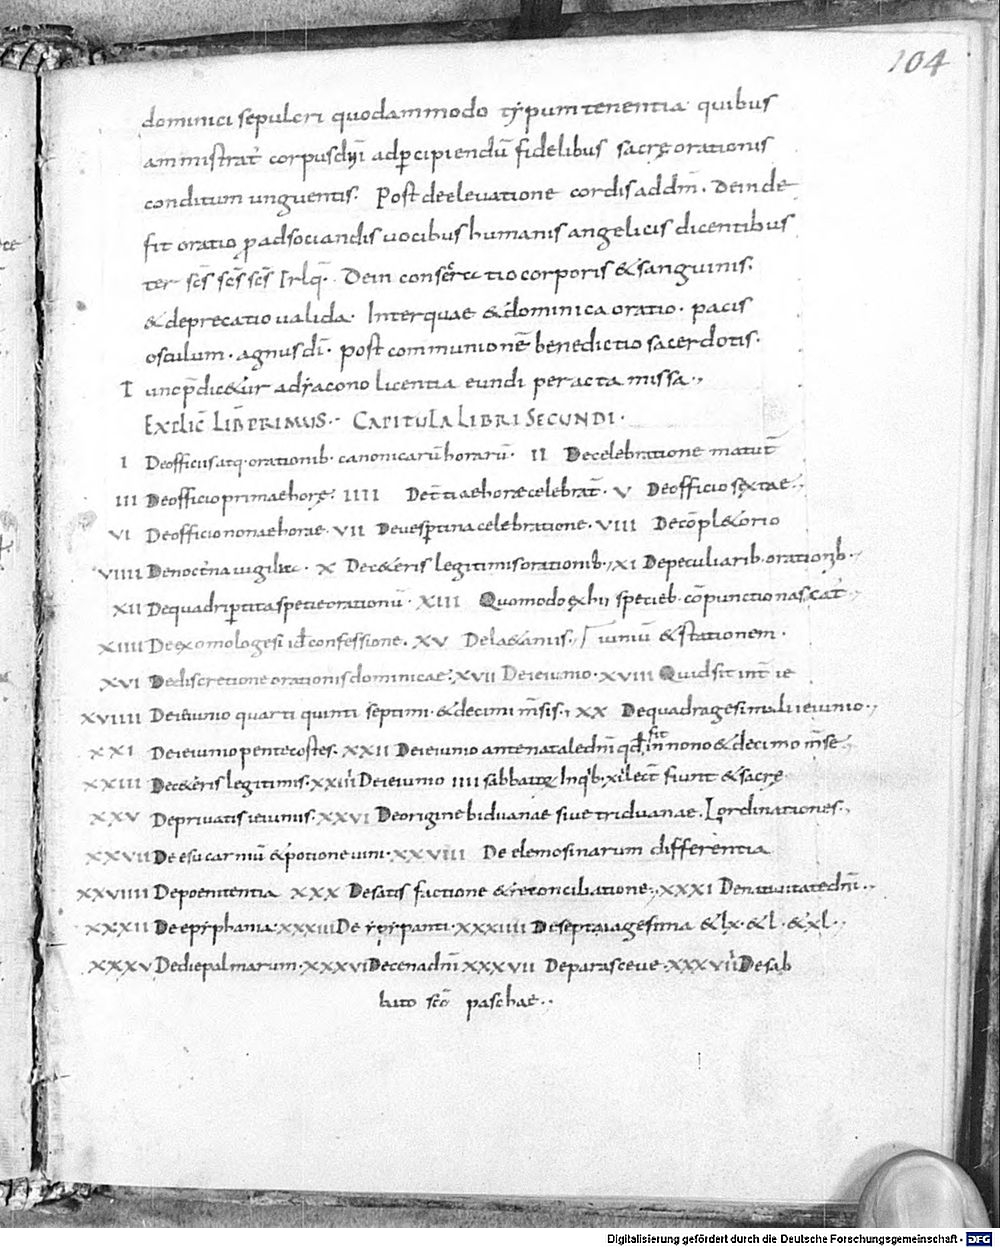 104
dominici sepulcri quodammodo typum tenentia quibus
amministrat̃ corpus dñi ad ꝑcipiendũ fidelibus sacrę orationis
conditum unguentis. Post de elevatione cordis ad dñm. Deinde
fit oratio ꝓ adsociandis vocibus humanis angelicis dicentibus
ter scs̃ scs̃ scs̃ . Dein consecratio corporis & sanguinis.
& deprecatio valida. Inter quae & dominica oratio. pacis
osculum. agnus dĩ. post communionẽ benedictio sacerdotis.
Tunc p̃dicetur a diacono licentia eundi peracta missa.,
EXPLIC̃ LIB̃ PRIMUS. CAPITULA LIBRI SECUNDI.
I De officiis atq. orationib. canonicarũ horarũ. II De celebratione matut̃
III De officio primae horę. IIII De t̃tiae horae celebrat̃. V De officio sextae.,
VI De officio nonae horae. VII De vesꝑtina celebratione. VIII De cõpl&orio
VIIII De noct̃na vigilia. X De c&eris legitimis orationib., XI De peculiarib. orationib.,
XII De quadriꝑtita specie orationũ. XIII Quomodo ex his specieb. cõpunctio nascat̃.,
XIIII De exomologesi id ẽ confessione. XV De la&aniis., iuniũ & stationem.
XVI De discretione orationis dominicae. XVII De ieiunio. XVIII Quid sit int̃ ie
XVIIII De ieiunio quarti quinti septimi. & decimi m̃sis., XX De quadragesimali ieiunio.,
XXI De ieiunio pentecostes. XXII De ieiunio ante natale dñi qd fit in nono & decimo m̃se.,
XXIII De c&eris legitimis. XXIIII De ieiunio IIII sabbatorum In qib. XII lect̃ fiunt & sacrę
XXV De privatis ieiuniis. XXVI De origine biduanae sive triduanae. ordinationes.,
XXVII De esu carniũ & potione vini. XXVIII De elemosinarum differentia
XXVIIII De poenitentia XXX De satisfactione & reconciliatione., XXXI De nativitate dñi.,
XXXII De epyphania. XXXIII De ypypanti. XXXIIII De septuagesima & lx. & l. & xl.,
XXXV De die palmarum. XXXVI De cena dñi XXXVII De parasceue. XXXVIII De sab
bato scõ paschae..
Digitalisierung gefördert durch die Deutsche Forschungsgemeinschaft - DFG